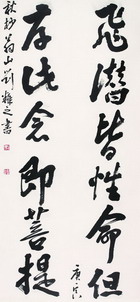 飛潛皆性命但
存此念即菩提
庚辰
秋抄翁山劉權之書